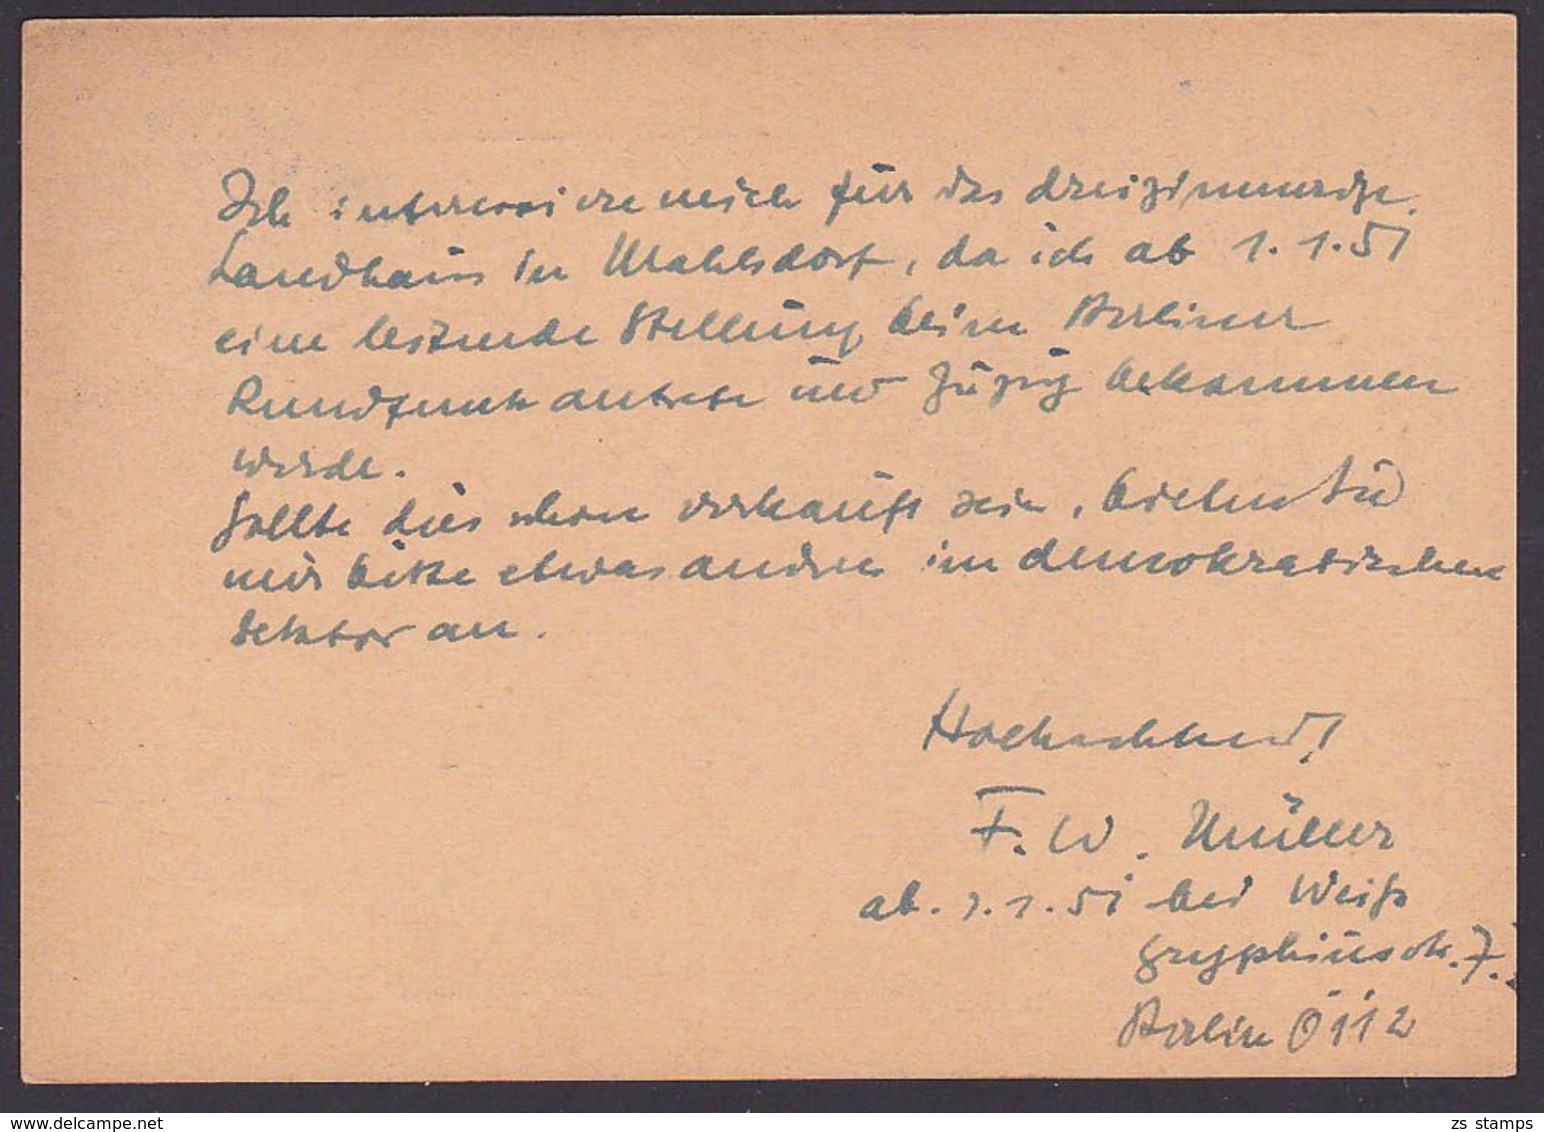 Ich interessiere mich für das dreizimmrige
Landhaus in Mahlsdorf, da ich ab 1.1.51
eine leitende Stellung beim Berliner
Rundfunk antrete und Zuzug bekommen
werde.
Sollte dies schon verkauft sein, bieten Sie
mir bitte etwas andres im demokratischen
Sektor an.
Hochachtend!
F. W. Müller
ab. 1.1.51 bei Weiß
Gryphiusstr. 7.
Berlin O 112
zs stamps